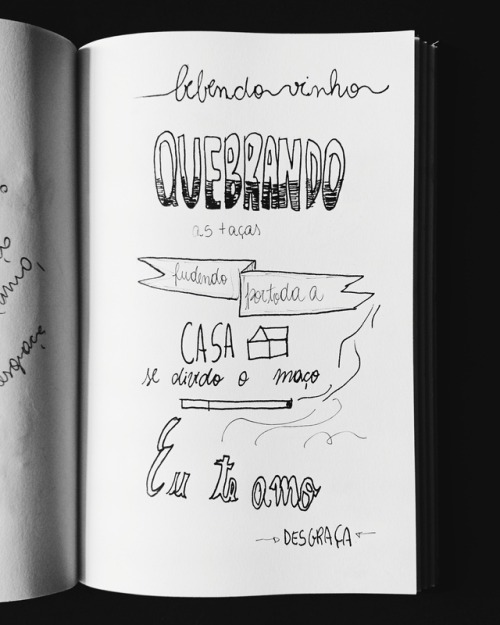 bebendo vinho
QUEBRANDO
as taças
fudendo
por toda a
CASA
se divido o maço
Eu te amo
DESGRAÇA